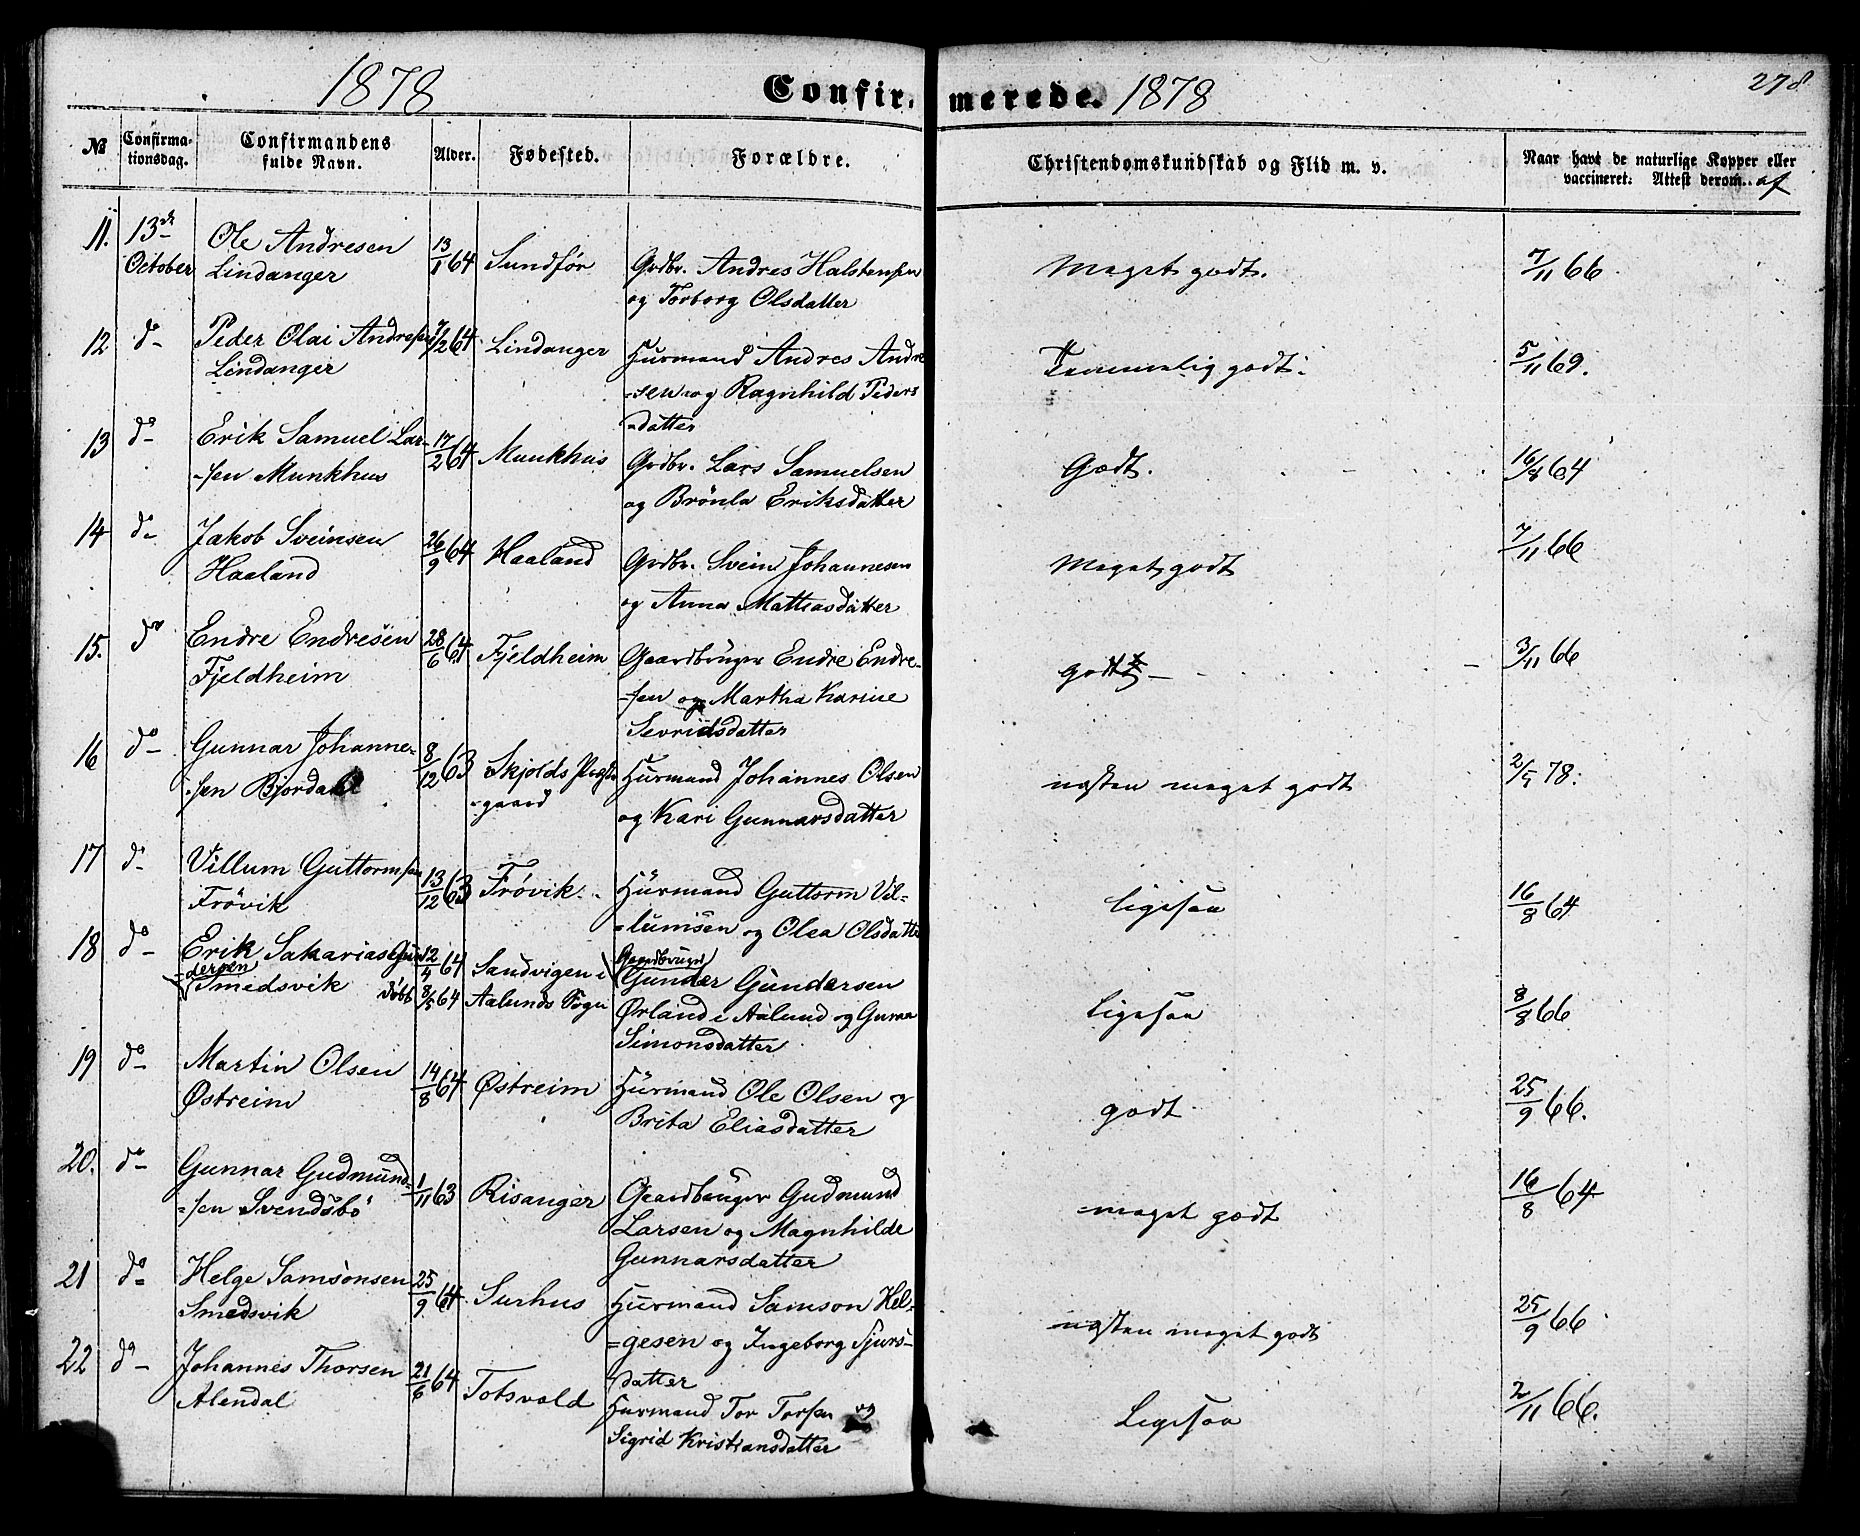 1878
Confirmerede. 1878
278
№ Confirmationsdag. Confirmandens fulde Navn. Alder. Fødested. Forældre. Christendomskundskab og Flid m. v. Naar havt de naturlige Kopper eller vaccineret: Attest derom.. af
11. 13de October Ole Andresen Lindanger 13/1 64 Sundför Grdbr. Andres Halstensen og Torborg Olsdatter Meget godt. 7/11 66
12 do Peder Olai Andresen Lindanger 7/2 64 Lindanger Husmand Andres Andre-sen og Ragnhild Peders-datter Temmelig godt. 5/11 69.
13 do Erik Samuel Lar-sen Munkhus 17/2 64 Munkhus Grdbr. Lars Samuelsen og Brönla Eriksdatter Godt. 16/8 64
14 do Jakob Sveinsen Haaland 26/9 64 Haaland Grdbr. Svein Johannesen og Anna Mathiasdatter Meget godt 7/11 66
15. do Endre Endresen Fjeldheim 28/6 64 Fjeldheim Gaardbruger Endre Endre-sen og Martha Karine Sevridsdatter godt 3/11 66
16 do Gunnar Johanne-sen Bjordal 8/12 63 Skjolds Præste-gaard Husmand Johannes Olsen og Kari Gunnarsdatter næsten meget godt 2/5 78.
17 do Villum Guttormsen Frövik 13/12 63 Frövik Husmand Guttorm Vil-lumsen og Olea Olsdatter Ligesaa 16/8 64
18 do Erik Sakarias Gun-dersen Smedsvik 12/4 64 döbt 8/5 64 Sandvigen i Aalunds Sogn Gaardbruger Gunder Gundersen Ørland i Aalund og Simonsdatter Ligesaa 8/8 66
19 do Martin Olsen Østreim 14/8 64 Østreim Husmand Ole Olsen og Brita Eliasdatter godt 25/9 66.
20. do Gunnar Gudmund-sen Svendsbö 1/11 63 Risanger Gaardbruger Gudmund Larsen og Magnhilde Gunnarsdatter meget godt 16/8 64
21 do Helge Samsonsen Smedsvik 25/9 64 Surhus Husmand Samson Hel-gesen og Ingeborg Sjurs-datter næsten meget godt 25/9 66
22 do Johannes Thorsen Alendal 21/6 64 Totsvold Husmand Tor Torsen og Sigrid Kristiansdatter Ligesaa 2/11 66.